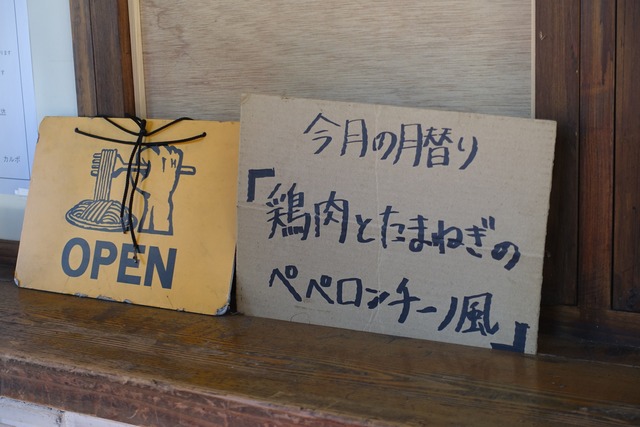 OPEN
今月の月替り
「鶏肉とたまねぎの
ペペロンチーノ風」
カルボ